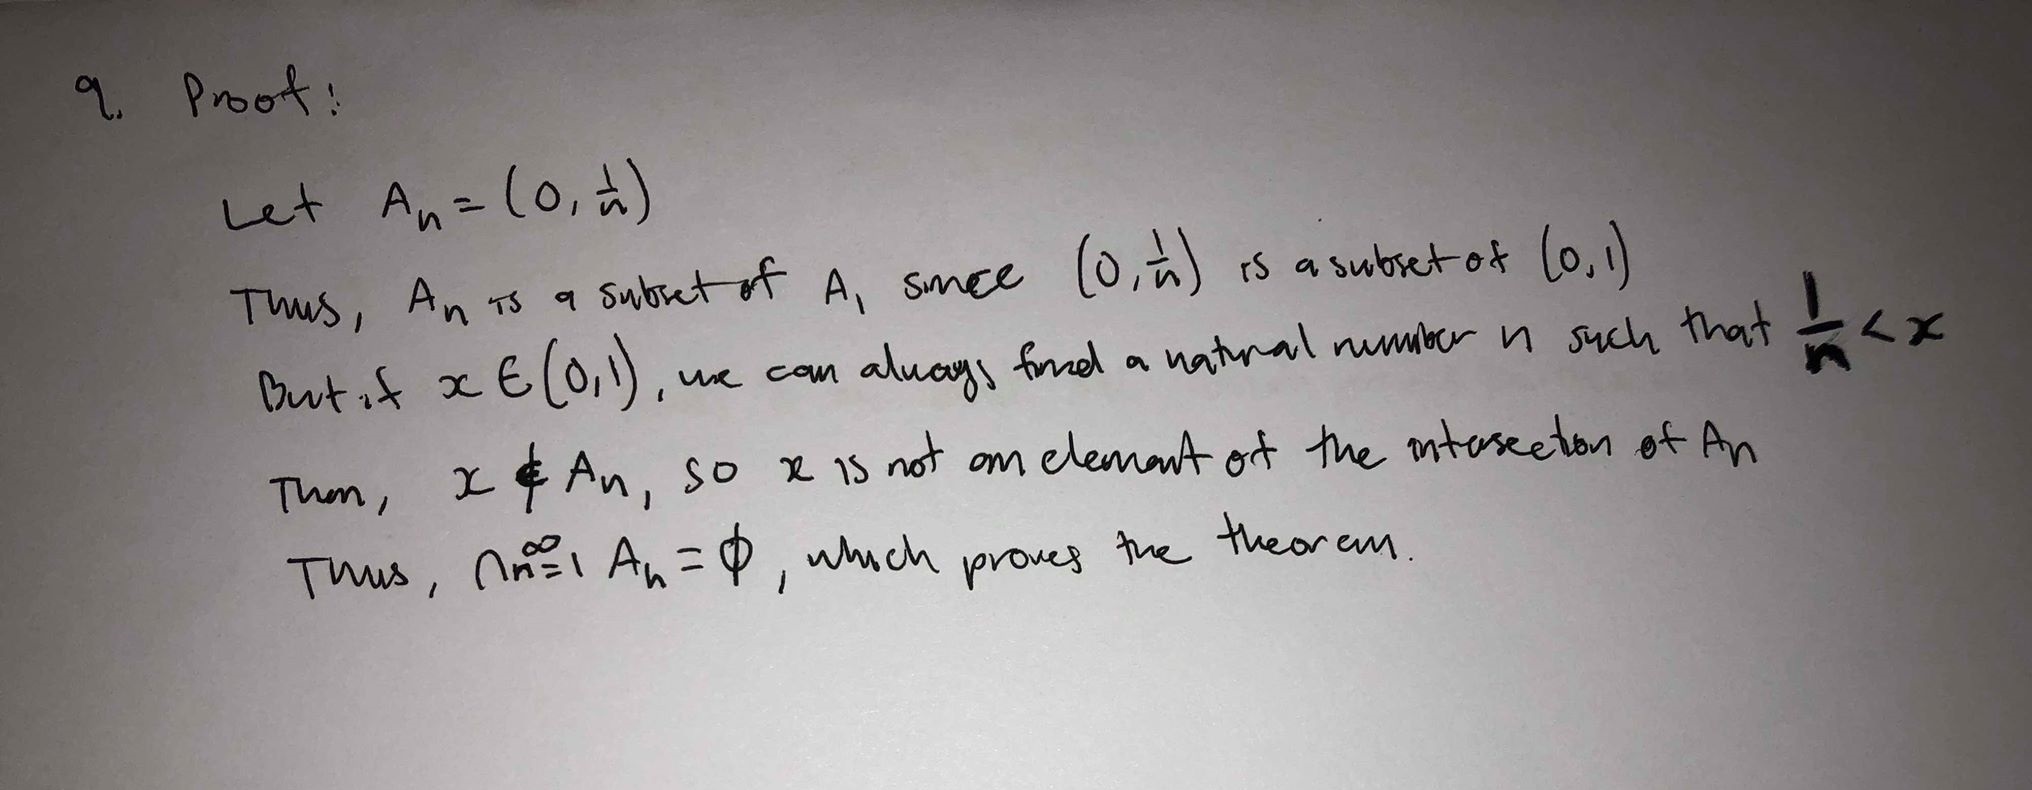 9. Proof:
Let Aₙ = (0, 1/n)
Thus, Aₙ is a subset of A₁ since (0, 1/n) is a subset of (0,1)
But if x ∈ (0,1), we can always find a natural number n such that 1/n < x
Then, x ∉ Aₙ, so x is not an element of the intersection of Aₙ
Thus, ∩ₙ₌₁^∞ Aₙ = ∅, which proves the theorem.